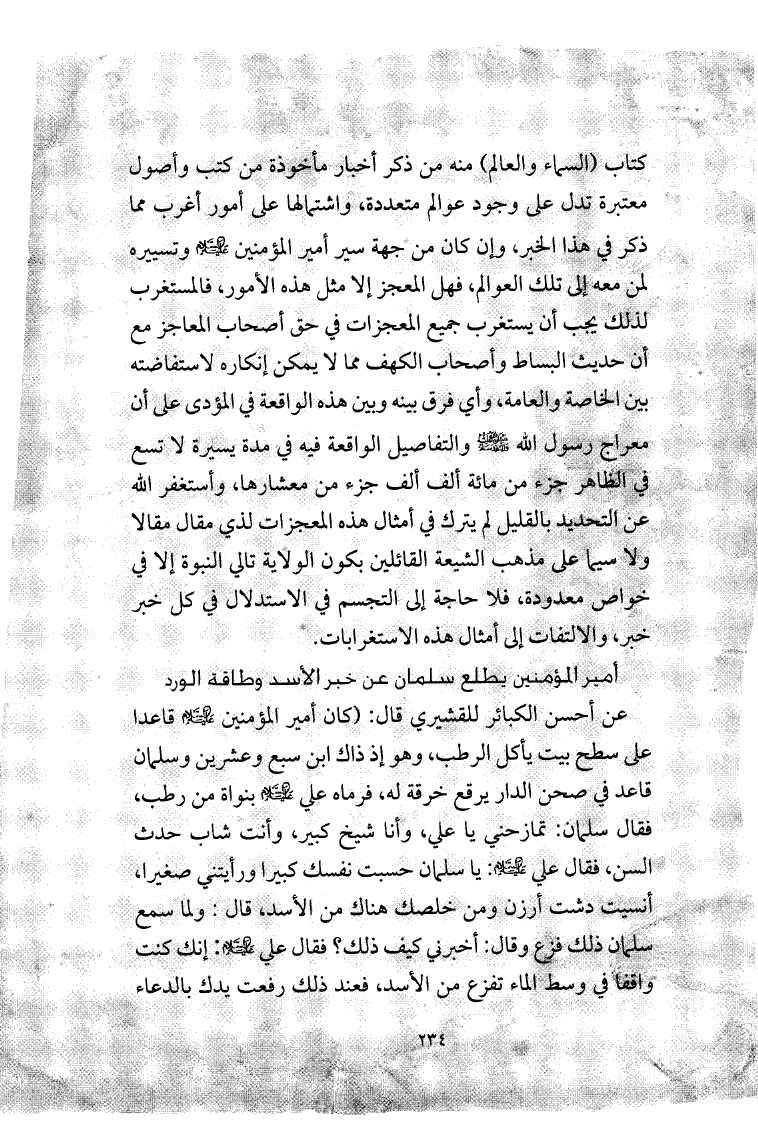 كتاب (السماء والعالم) منه من ذكر أخبار مأخوذة من كتب وأصول
معتبرة تدل على وجود عوالم متعددة، واشتمالها على أمور أغرب مما
ذكر في هذا الخبر، وإن كان من جهة سير أمير المؤمنين عليه السلام وتسييره
لمن معه إلى تلك العوالم، فهل المعجز إلا مثل هذه الأمور، فالمستغرب
لذلك يجب أن يستغرب جميع المعجزات في حق أصحاب المعاجز مع
أن حديث البساط وأصحاب الكهف مما لا يمكن إنكاره لاستفاضته
بين الخاصة والعامة، وأي فرق بينه وبين هذه الواقعة في المؤدى على أن
معراج رسول الله ﷺ والتفاصيل الواقعة فيه في مدة يسيرة لا تسع
في الظاهر جزء من مائة ألف ألف جزء من معشارها، وأستغفر الله
عن التحديد بالقليل لم يترك في أمثال هذه المعجزات لذي مقال مقالا
ولا سيما على مذهب الشيعة القائلين بكون الولاية تالي النبوة إلا في
خواص معدودة، فلا حاجة إلى التجسم في الاستدلال في كل خبر
خبر، والالتفات إلى أمثال هذه الاستغرابات.
أمير المؤمنين يطلع سلمان عن خبر الأسد وطاقة الورد
عن أحسن الكبائر للقشيري قال: (كان أمير المؤمنين عليه السلام قاعدا
على سطح بيت يأكل الرطب، وهو إذ ذاك ابن سبع وعشرين وسلمان
قاعد في صحن الدار يرقع خرقة له، فرماه علي عليه السلام بنواة من رطب،
فقال سلمان: تمازحني يا علي، وأنا شيخ كبير، وأنت شاب حدث
السن، فقال علي عليه السلام: يا سلمان حسبت نفسك كبيرا ورأيتني صغيرا،
أنسيت دشت أرزن ومن خلصك هناك من الأسد، قال : ولما سمع
سلمان ذلك فزع وقال: أخبرني كيف ذلك؟ فقال علي عليه السلام: إنك كنت
واقفا في وسط الماء تفزع من الأسد، فعند ذلك رفعت يدك بالدعاء
٢٣٤